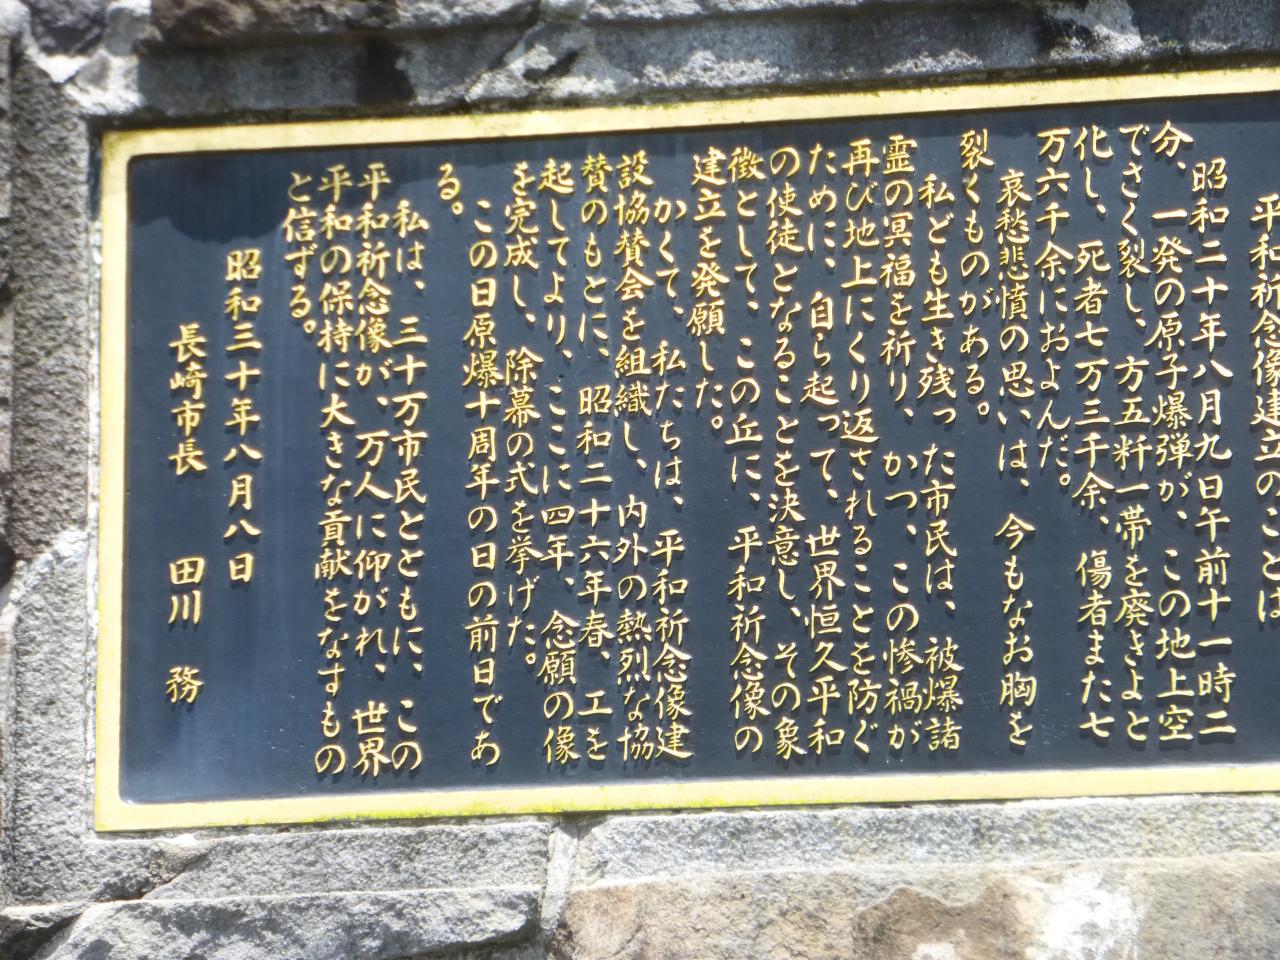 平和祈念像建立のことば
昭和二十年八月九日午前十一時二
分、一発の原子爆弾が、この地上空
でさく裂し、方五粁一帯を廃きよと
化し、死者七万三千余、傷者また七
万六千余におよんだ。
哀愁悲憤の思いは、今もなお胸を
裂くものがある。
私ども生き残った市民は、被爆諸
霊の冥福を祈り、かつ、この惨禍が
再び地上にくり返されることを防ぐ
ために、自ら起って、世界恒久平和
の使徒となることを決意し、その象
徴として、この丘に、平和祈念像の
建立を発願した。
かくて、私たちは、平和祈念像建
設協賛会を組織し、内外の熱烈な協
賛のもとに、昭和二十六年春、工を
起してより、ここに四年、念願の像
を完成し、除幕の式を挙げた。
この日原爆十周年の日の前日であ
る。
私は、三十万市民とともに、この
平和祈念像が、万人に仰がれ、世界
平和の保持に大きな貢献をなすもの
と信ずる。
昭和三十年八月八日
長崎市長 田川 務